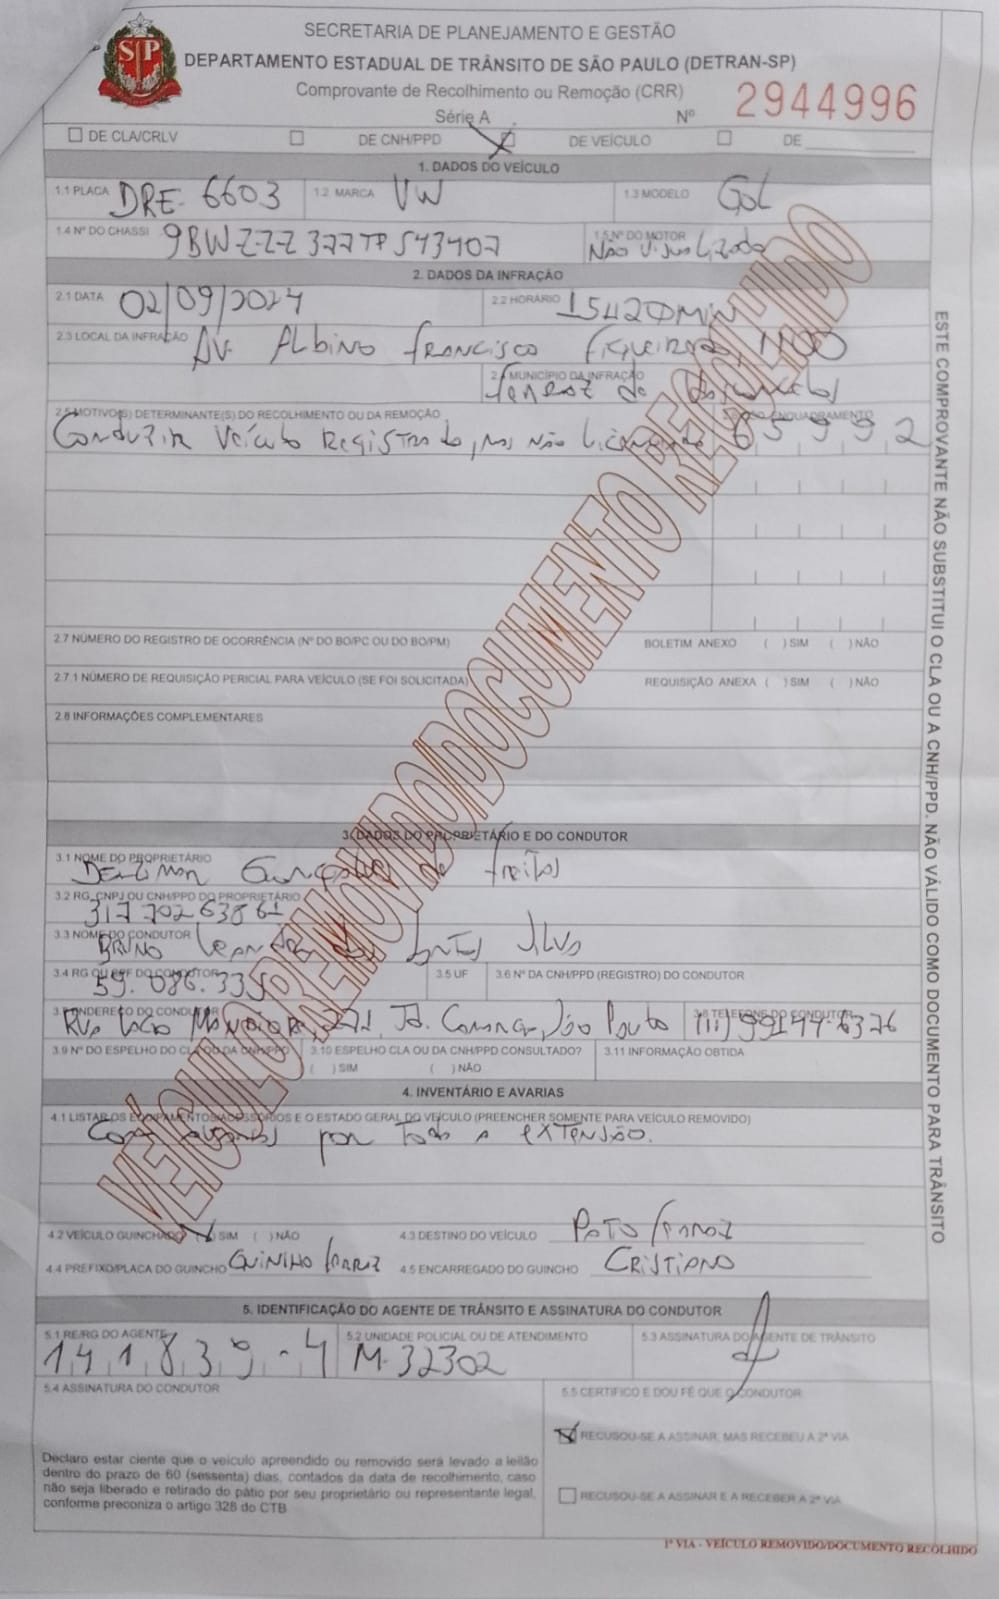 SP
SECRETARIA DE PLANEJAMENTO E GESTÃO
DEPARTAMENTO ESTADUAL DE TRÂNSITO DE SÃO PAULO (DETRAN-SP)
Comprovante de Recolhimento ou Remoção (CRR)
Série A
Nº 2944996
DE CLA/CRLV DE CNH/PPD DE VEÍCULO DE
1. DADOS DO VEÍCULO
1.1 PLACA DRE-6603 1.2 MARCA VW 1.3 MODELO GOL
1.4 Nº DO CHASSI 9BWZZZ377TP543407 1.5 Nº DO MOTOR Não Visualizado
2. DADOS DA INFRAÇÃO
2.1 DATA 02/09/2024 2.2 HORÁRIO 15H20MIN
2.3 LOCAL DA INFRAÇÃO AV. Albino Francisco Figueiredo, 1100
2.4 MUNICÍPIO DA INFRAÇÃO Ferraz de
2.5 MOTIVO(S) DETERMINANTE(S) DO RECOLHIMENTO OU DA REMOÇÃO ENQUADRAMENTO
Conduzir Veículo Registrado, mas não licenciado 6 5 9 9 2
2.7 NÚMERO DO REGISTRO DE OCORRÊNCIA (Nº DO BO/PC OU DO BO/PM) BOLETIM ANEXO ( ) SIM ( ) NÃO
2.7.1 NÚMERO DE REQUISIÇÃO PERICIAL PARA VEÍCULO (SE FOI SOLICITADA) REQUISIÇÃO ANEXA ( ) SIM ( ) NÃO
2.8 INFORMAÇÕES COMPLEMENTARES
3. DADOS DO PROPRIETÁRIO E DO CONDUTOR
3.1 NOME DO PROPRIETÁRIO
de Freitas
3.2 RG, CNPJ OU CNH/PPD DO PROPRIETÁRIO
31770263861
3.3 NOME DO CONDUTOR
BRUNO Silva
3.4 RG OU CPF DO CONDUTOR 59.086.335 3.5 UF 3.6 Nº DA CNH/PPD (REGISTRO) DO CONDUTOR
3.7 ENDEREÇO DO CONDUTOR Rua 271, Jd. São Paulo 3.8 TELEFONE DO CONDUTOR (11) 99144-6376
3.9 Nº DO ESPELHO DO CLA OU DA CNH/PPD 3.10 ESPELHO CLA OU DA CNH/PPD CONSULTADO? 3.11 INFORMAÇÃO OBTIDA
( ) SIM ( ) NÃO
4. INVENTÁRIO E AVARIAS
4.1 LISTAR OS EQUIPAMENTOS/ACESSÓRIOS E O ESTADO GERAL DO VEÍCULO (PREENCHER SOMENTE PARA VEÍCULO REMOVIDO)
Com avarias por toda a extensão.
4.2 VEÍCULO GUINCHADO ( ) SIM ( ) NÃO 4.3 DESTINO DO VEÍCULO Pátio Ferraz
4.4 PREFIXO/PLACA DO GUINCHO Guincho Ferraz 4.5 ENCARREGADO DO GUINCHO CRISTIANO
5. IDENTIFICAÇÃO DO AGENTE DE TRÂNSITO E ASSINATURA DO CONDUTOR
5.1 RE/RG DO AGENTE 141839-4 5.2 UNIDADE POLICIAL OU DE ATENDIMENTO M-32302 5.3 ASSINATURA DO AGENTE DE TRÂNSITO
5.4 ASSINATURA DO CONDUTOR
5.5 CERTIFICO E DOU FÉ QUE O CONDUTOR:
RECUSOU-SE A ASSINAR, MAS RECEBEU A 2ª VIA
RECUSOU-SE A ASSINAR E A RECEBER A 2ª VIA
Declaro estar ciente que o veículo apreendido ou removido será levado a leilão
dentro do prazo de 60 (sessenta) dias, contados da data de recolhimento, caso
não seja liberado e retirado do pátio por seu proprietário ou representante legal,
conforme preconiza o artigo 328 do CTB
1ª VIA - VEÍCULO REMOVIDO/DOCUMENTO RECOLHIDO
VEÍCULO REMOVIDO/DOCUMENTO RECOLHIDO
ESTE COMPROVANTE NÃO SUBSTITUI O CLA OU A CNH/PPD. NÃO VÁLIDO COMO DOCUMENTO PARA TRÂNSITO